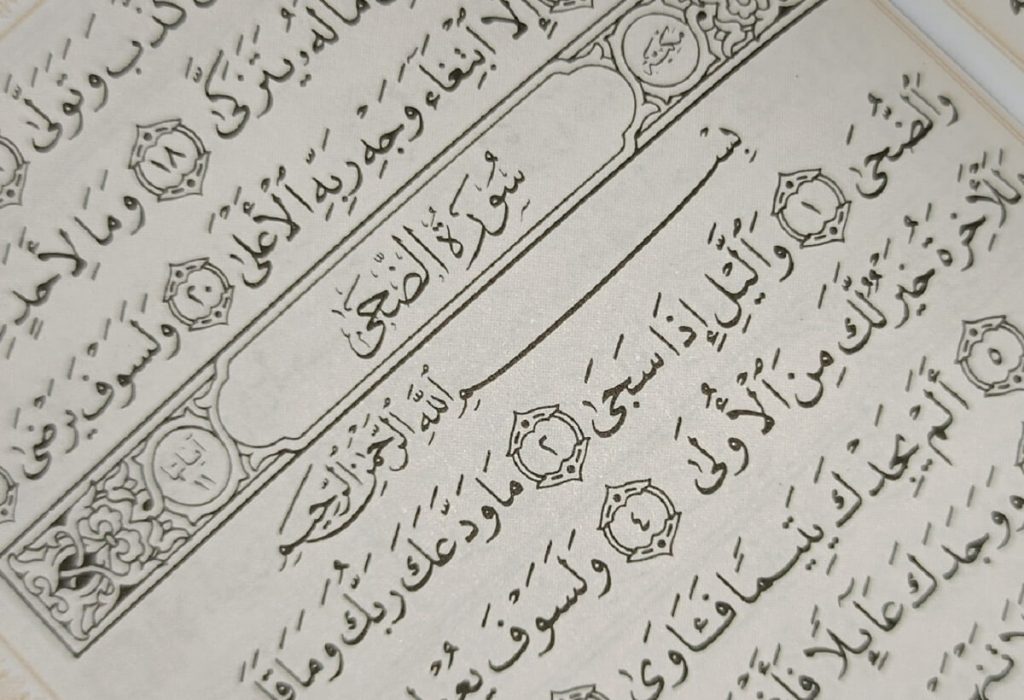 كَذَّبَ وَتَوَلَّىٰ
مَالَهُۥ يَتَزَكَّىٰ ١٨ وَمَا لِأَحَدٍ
إِلَّا ٱبْتِغَآءَ وَجْهِ رَبِّهِ ٱلْأَعْلَىٰ ٢٠ وَلَسَوْفَ يَرْضَىٰ
مكية سُورَةُ الضُّحَىٰ آياتها ١١
بِسْمِ ٱللَّهِ ٱلرَّحْمَٰنِ ٱلرَّحِيمِ
وَٱلضُّحَىٰ ١ وَٱلَّيْلِ إِذَا سَجَىٰ ٢ مَا وَدَّعَكَ رَبُّكَ وَمَا
وَلَلْءَاخِرَةُ خَيْرٌ لَّكَ مِنَ ٱلْأُولَىٰ ٤ وَلَسَوْفَ
٥ أَلَمْ يَجِدْكَ يَتِيمًا فَـَٔاوَىٰ
وَوَجَدَكَ عَآئِلًا